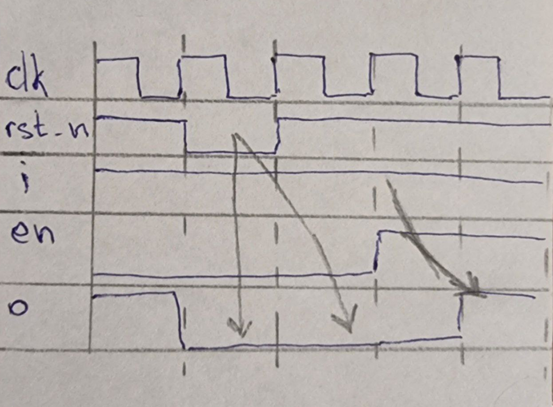 clk
rst-n
i
en
o